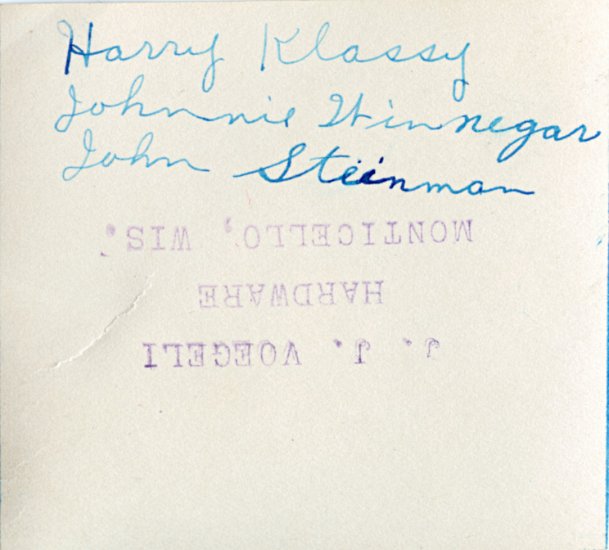 Harry Klassy
Johnnie Winnegar
John Steinman
J. J. VOEGELI
HARDWARE
MONTICELLO, WIS.